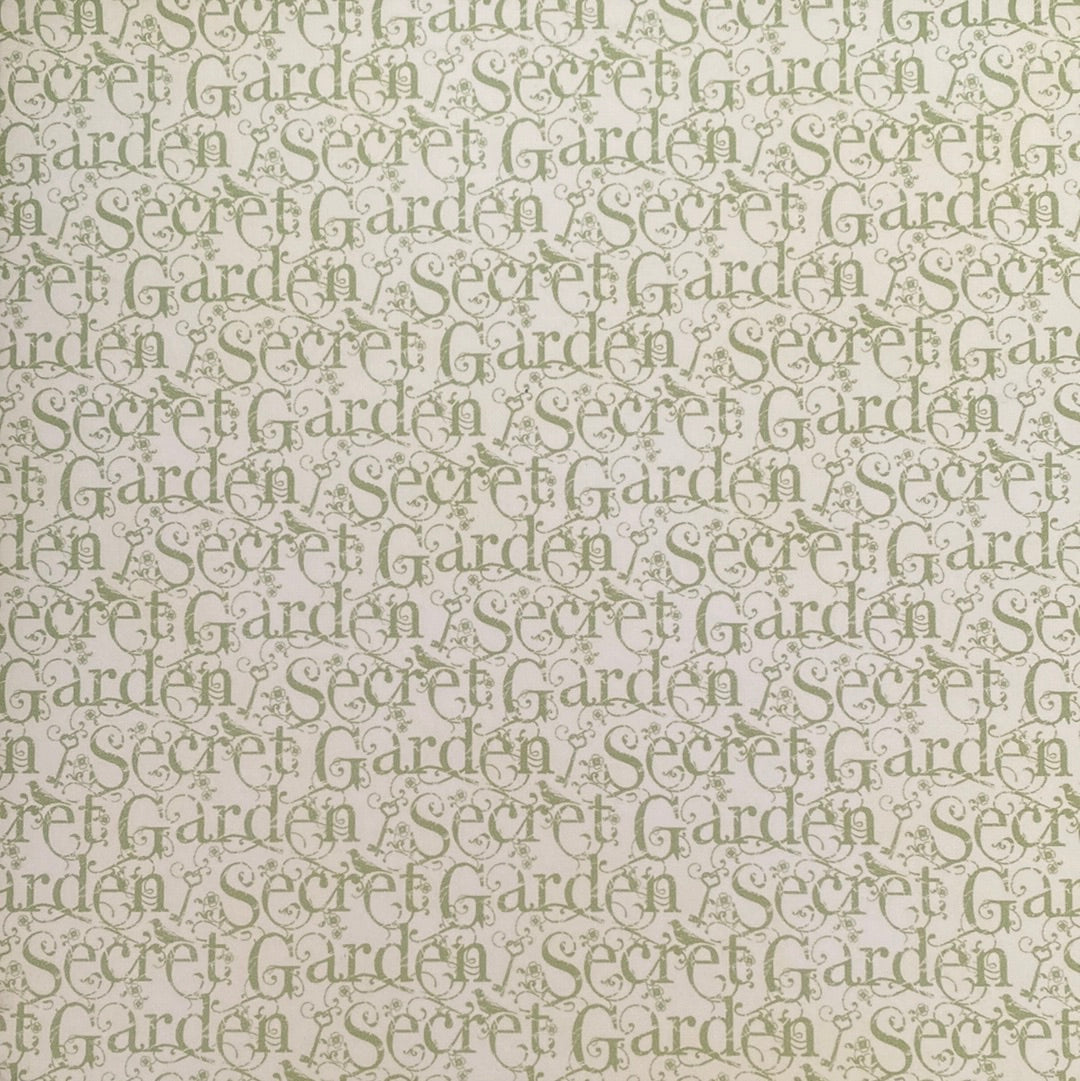 Garden Secret Garden Secret Garden
ecret Garden Secret Garden Sec
Garden Secret Garden Secret Ga
n Secret Garden Secret Garden
ret Garden Secret Garden Secre
arden Secret Garden Secret Gar
Secret Garden Secret Garden S
t Garden Secret Garden Secret
den Secret Garden Secret Garde
ecret Garden Secret Garden Se
Garden Secret Garden Secret G
n Secret Garden Secret Garden
ret Garden Secret Garden Secr
arden Secret Garden Secret Gar
Secret Garden Secret Garden S
t Garden Secret Garden Secret